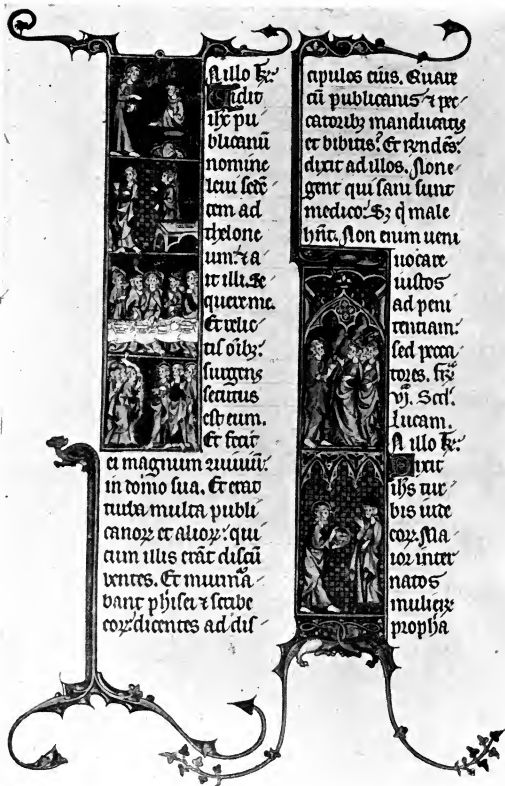 N illo tr̄.
Vidit
ihc pu
blicanū
nomine
leui sedē
tem ad
thelone
um: ⁊ a
it illi. Se
quere me.
Et relic
tis oīb⁊:
surgens
secutus
est eum.
Et fecit
ei magnum
in domo sua. Et erat
turba multa publi
canoꝝ et alioꝝ: qui
cum illis erāt discū
bentes. Et murmͣa
bant phisei ⁊ scribe
eoꝝ dicentes ad dis
cipulos eius. Quare
cū publicanis ⁊ pec
catorib⁊ manducatis
et bibitis? Et rendēs:
dixit ad illos. Non e
gent qui sani sunt
medico: S⁊ q̇ male
hn̄t. Non enim ueni
uocare
iustos
ad peni
tentiam:
sed pecca
tores. fr̄
vj. Scd̄.
lucam.
N illo tr̄.
Dixit
ihs tur
bis iude
oꝝ. Ma
ior inter
natos
mulieꝝ
propha